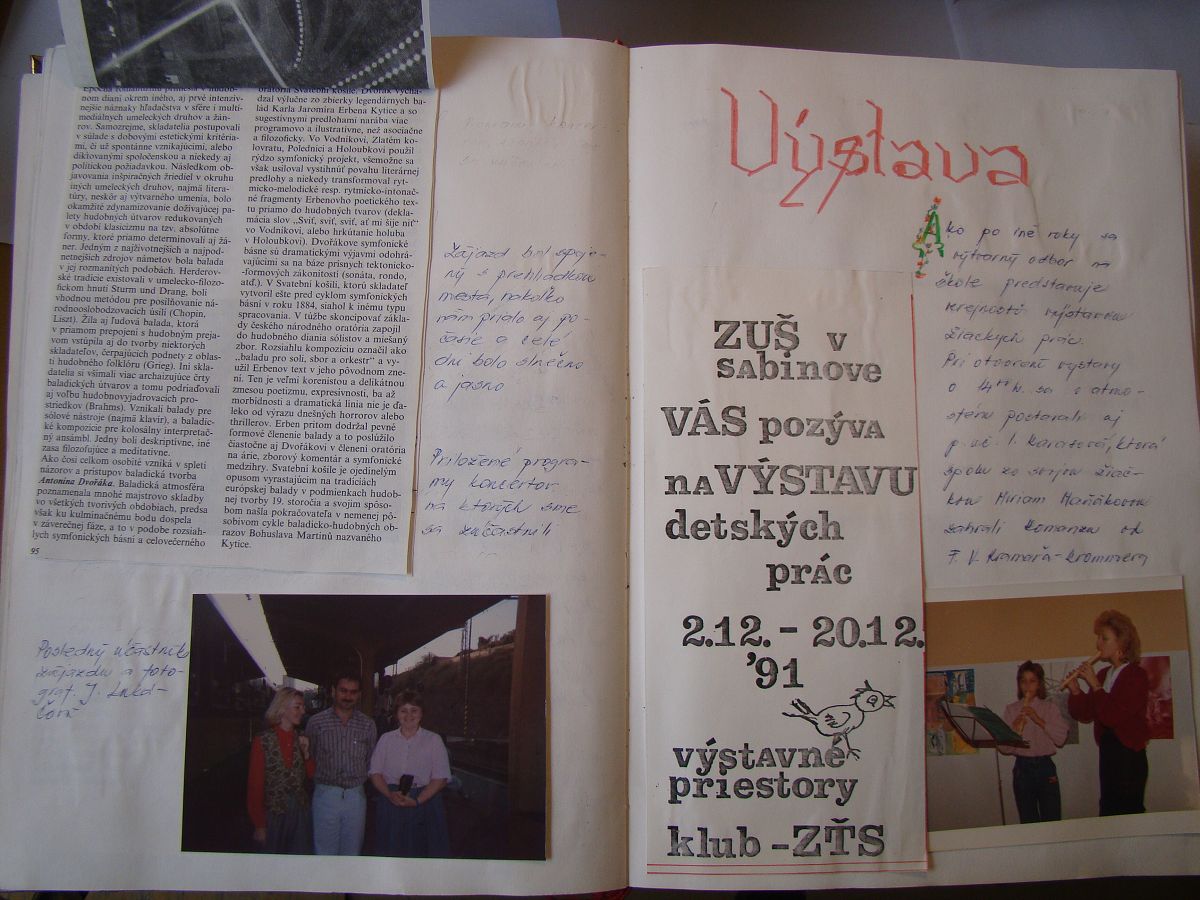 Epocha romantizmu priniesla v hudob-
nom dianí okrem iného, aj prvé intenzív-
nejšie náznaky hľadačstva v sfére i multi-
mediálnych umeleckých druhov a žán-
rov. Samozrejme, skladatelia postupovali
v súlade s dobovými estetickými kritéria-
mi, či už spontánne vznikajúcimi, alebo
diktovanými spoločenskou a niekedy aj
politickou požiadavkou. Následkom ob-
javovania inšpiračných žriediel v okruhu
iných umeleckých druhov, najmä litera-
túry, neskôr aj výtvarného umenia, bolo
okamžité zdynamizovanie dožívajúcej pa-
lety hudobných útvarov redukovaných
v období klasicizmu na tzv. absolútne
formy, ktoré priamo determinovali aj žá-
ner. Jedným z najživotnejších a najpod-
netnejších zdrojov námetov bola balada
v jej rozmanitých podobách. Herderov-
ské tradície existovali v umelecko-filozo-
fickom hnutí Sturm und Drang, boli
vhodnou metódou pre posilňovanie ná-
rodnooslobodzovacích úsilí (Chopin,
Liszt). Žila aj ľudová balada, ktorá
v priamom prepojení s hudobným preja-
vom vstúpila aj do tvorby niektorých
skladateľov, čerpajúcich podnety z oblas-
ti hudobného folklóru (Grieg). Iní skla-
datelia si všímali viac archaizujúce črty
baladických útvarov a tomu podriaďovali
aj voľbu hudobnovyjadrovacích pros-
triedkov (Brahms). Vznikali balady pre
sólové nástroje (najmä klavír), a baladic-
ké kompozície pre kolosálny interpretač-
ný ansámbl. Jedny boli deskriptívne, iné
zasa filozofujúce a meditatívne.
Ako čosi celkom osobité vzniká v spleti
názorov a prístupov baladická tvorba
Antonína Dvořáka. Baladická atmosféra
poznamenala mnohé majstrovo skladby
vo všetkých tvorivých obdobiach, predsa
však ku kulminačnému bodu dospela
v záverečnej fáze, a to v podobe rozsiah-
lych symfonických básní a celovečerného
95
oratória Svatební košile. Dvořák vychá-
dzal výlučne zo zbierky legendárnych ba-
lád Karla Jaromíra Erbena Kytice a so
sugestívnymi predlohami narába viac
programovo a ilustratívne, než asociačne
a filozoficky. Vo Vodníkovi, Zlatém ko-
lovratu, Polednici a Holoubkovi použil
rýdzo symfonický projekt, všemožne sa
však usiloval vystihnúť povahu literárnej
predlohy a niekedy transformoval ryt-
micko-melodické resp. rytmicko-intonač-
né fragmenty Erbenovho poetického tex-
tu priamo do hudobných tvarov (dekla-
mácia slov „Sviť, sviť, sviť, ať mi šije niť“
vo Vodníkovi, alebo hrkútanie holuba
v Holoubkovi). Dvořákove symfonické
básne sú dramatickými výjavmi odohrá-
vajúcimi sa na báze prísnych tektonicko-
-formových zákonitostí (sonáta, rondo,
atď.). V Svatební košili, ktorú skladateľ
vytvoril ešte pred cyklom symfonických
básní v roku 1884, siahol k inému typu
spracovania. V túžbe skoncipovať základy
českého národného oratória zapojil
do hudobného diania sólistov a miešaný
zbor. Rozsiahlu kompozíciu označil ako
„baladu pro soli, sbor a orkestr“ a vy-
užil Erbenov text v jeho pôvodnom zne-
ní. Ten je veľmi korenistou a delikátnou
zmesou poetizmu, expresívnosti, ba až
morbídnosti a dramatická línia nie je ďa-
leko od výrazu dnešných horrorov alebo
thrillerov. Erben pritom dodržal pevné
formové členenie balady a to poslúžilo
čiastočne aj Dvořákovi v členení oratória
na árie, zborový komentár a symfonické
medzihry. Svatební košile je ojedinelým
opusom vyrastajúcim na tradíciách
európskej balady v podmienkach hudob-
nej tvorby 19. storočia a svojím spôso-
bom našla pokračovateľa v nemenej pô-
sobivom cykle baladicko-hudobných ob-
razov Bohuslava Martinů nazvaného
Kytice.
Zájazd bol spoje-
ný s prehliadkou
mesta, nakoľko
nám prialo aj po-
časie a celé
dni bolo slnečno
a jasno
Priložené progra-
my koncertov
na ktorých sme
sa zúčastnili
Poslední účastníci
zájazdu a foto-
graf. J.
Výstava
Ako po iné roky sa
výtvarný odbor na
škole predstavuje
verejnosti výstavou
žiackych prác.
Pri otvorení výstavy
o 14 h. sa o atmo-
sféru postarali aj
p. uč. I. ktorá
spolu so svojou žiač-
kou Miriam Maňákovou
zahrali Romancu od
F. V. Kramářa-Krommera
ZUŠ v
SAbinove
VÁS pozýva
nA VÝSTAVU
detských
prÁc
2.12. - 20.12.
'91
výstAvné
priestory
klub - ZŤS